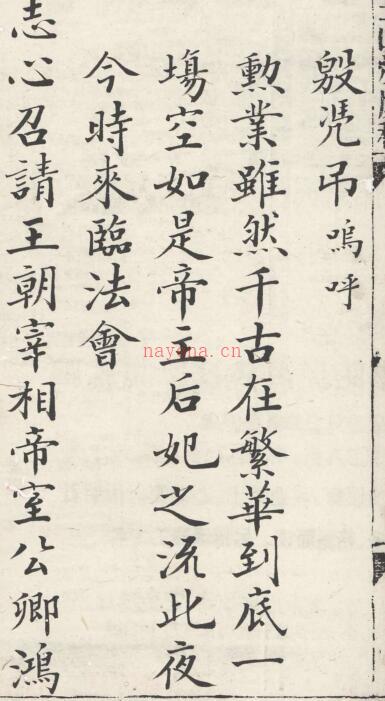 殷凴吊嗚呼
勲業雖然千古在繁華到底一
塲空如是帝主后妃之流此夜
今時來臨法會
志心召請王朝宰相帝室公卿鴻
nayona.cn